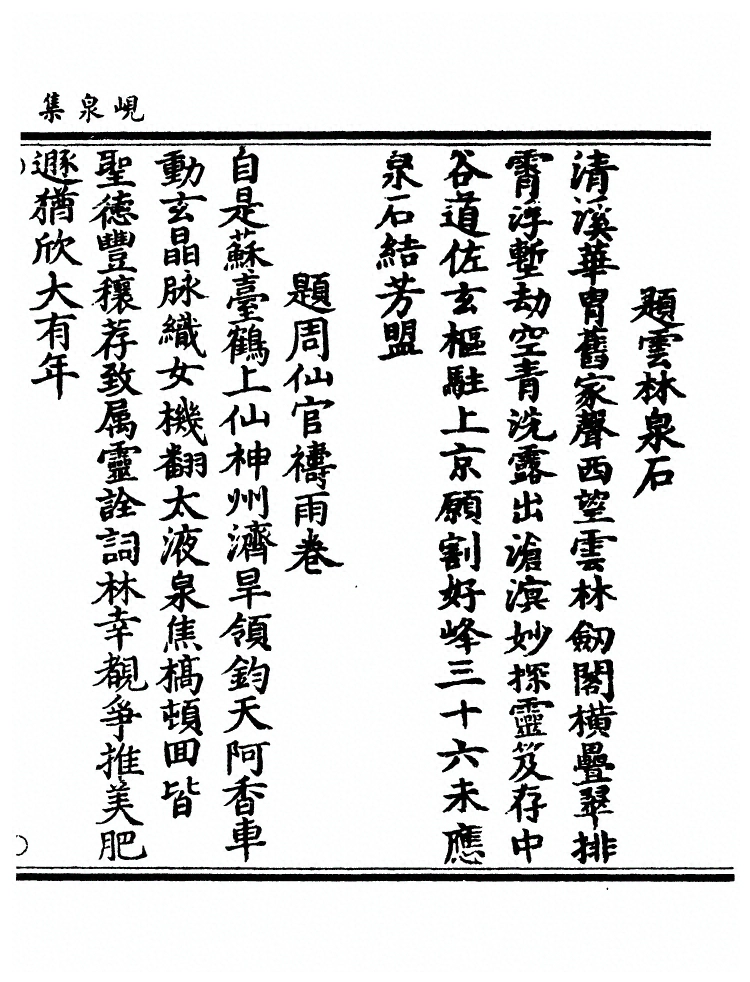 峴泉集
題雲林泉石
清溪華胄舊家聲西望雲林劒閣橫疊翠排
霄浮塹劫空青洗露出滄溟妙探靈笈存中
谷道佐玄樞駐上京願割好峰三十六未應
泉石結芳盟
題周仙官禱雨卷
自是蘇臺鶴上仙神州濟旱領鈞天阿香車
動玄晶脉織女機翻太液泉焦槁頓回皆
聖德豐穰荐致属靈詮詞林幸覩爭推美肥
遯猶欣大有年